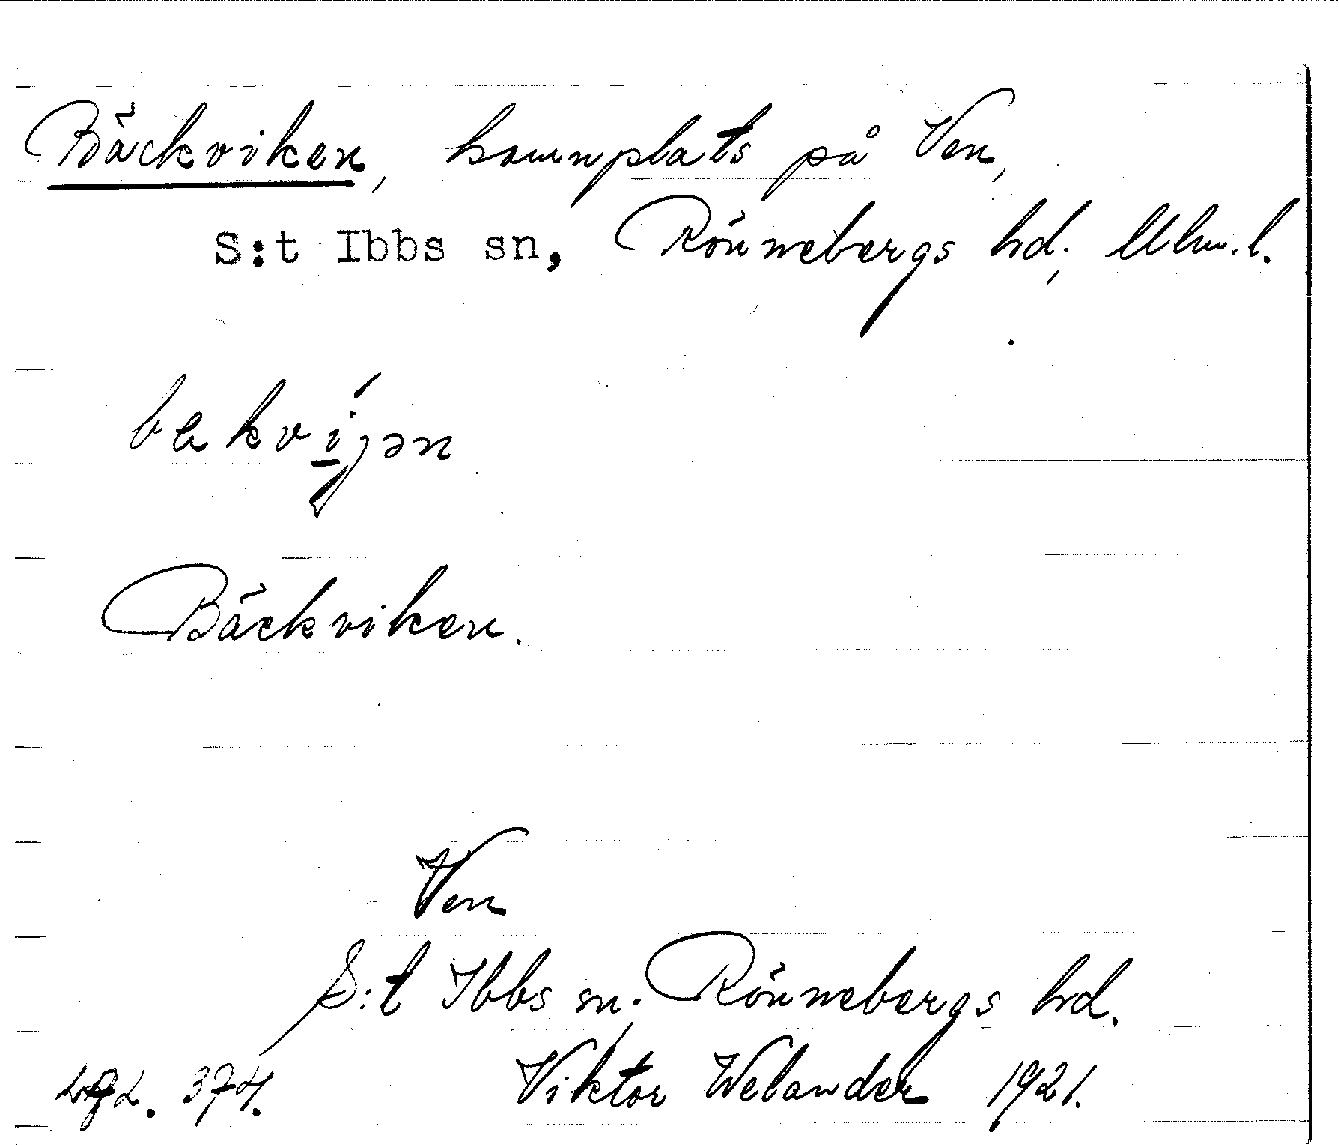 Bäckviken, hamnplats på Ven,
S:t Ibbs sn, Rönnebergs hd, Mlm. l.
bakvijən
Bäckviken.
Ven
S:t Ibbs sn. Rönnebergs hd.
374. Viktor Welander 1921.